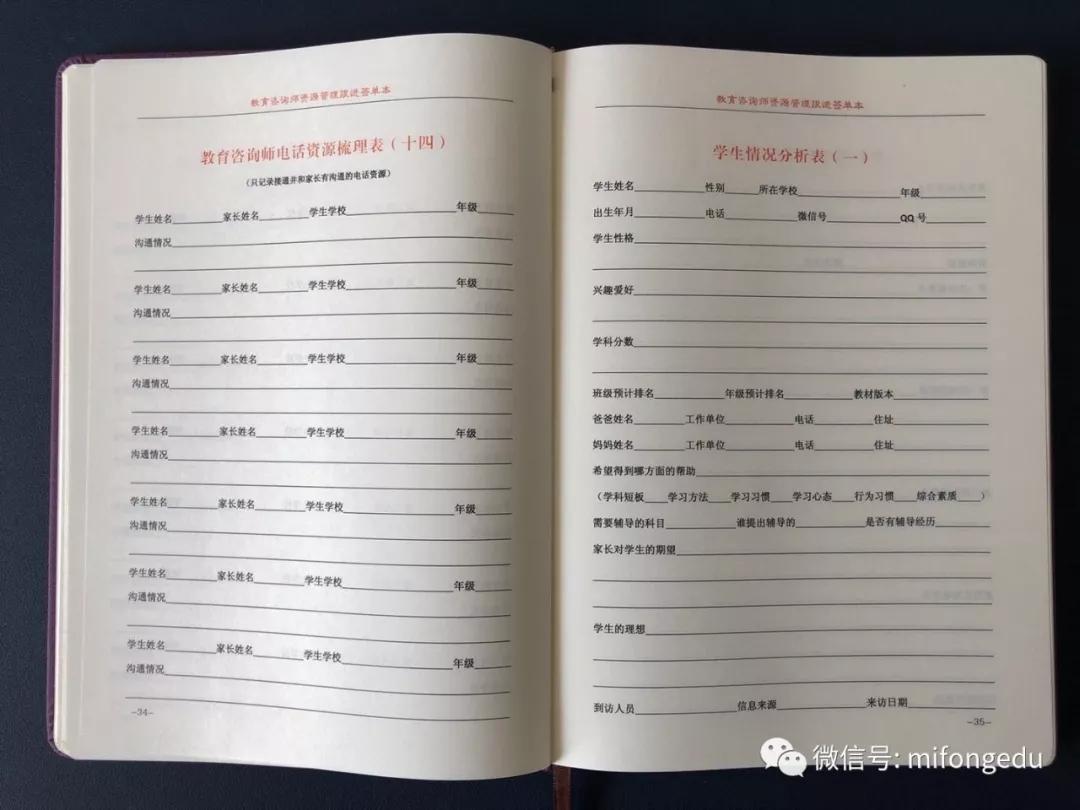 教育咨询师资源管理跟进签单本
教育咨询师电话资源梳理表（十四）
（只记录接通并和家长有沟通的电话资源）
学生姓名________家长姓名________学生学校________年级____
沟通情况________
学生姓名________家长姓名________学生学校________年级____
沟通情况________
学生姓名________家长姓名________学生学校________年级____
沟通情况________
学生姓名________家长姓名________学生学校________年级____
沟通情况________
学生姓名________家长姓名________学生学校________年级____
沟通情况________
学生姓名________家长姓名________学生学校________年级____
沟通情况________
学生姓名________家长姓名________学生学校________年级____
沟通情况________
-34-
教育咨询师资源管理跟进签单本
学生情况分析表（一）
学生姓名________性别____所在学校________年级____
出生年月________电话________微信号________QQ号____
学生性格________
兴趣爱好________
学科分数________
班级预计排名________年级预计排名________教材版本________
爸爸姓名________工作单位________电话________住址________
妈妈姓名________工作单位________电话________住址________
希望得到哪方面的帮助________
（学科短板____学习方法____学习习惯____学习心态____行为习惯____综合素质____）
需要辅导的科目________谁提出辅导的________是否有辅导经历________
家长对学生的期望________
学生的理想________
到访人员________信息来源________来访日期________
-35-
微信号: mifongedu